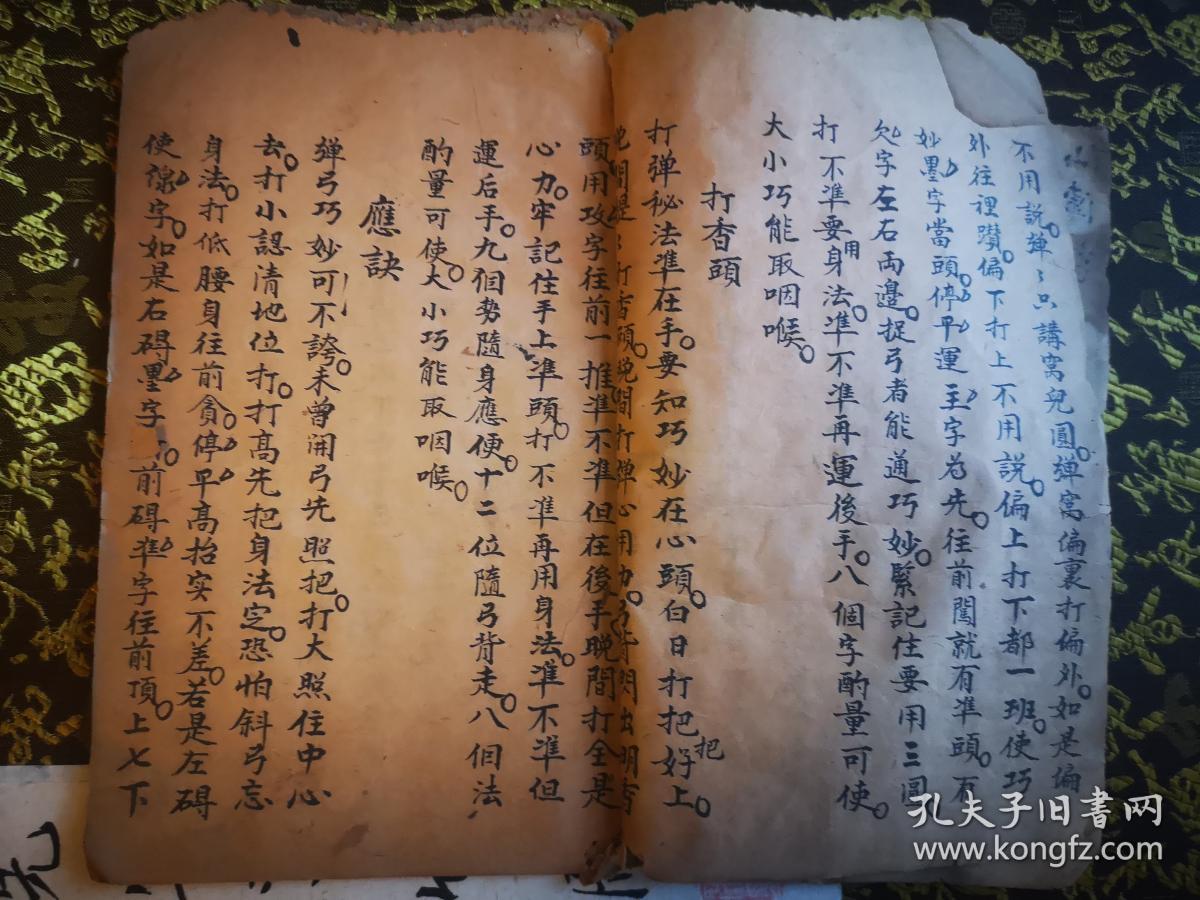 不用説。彈〻只講窩兒圓。彈窩偏裏打偏外。如是偏
外往裡躦。偏下打上不用説。偏上打下都一班。使巧
妙墨字當頭。停早運主字為先。往前闖就有準頭。
欠字左右両邊。捉弓者能通巧妙。緊記住要用三圓
打不準要用身法。準不準再運後手。八個字酌量可使。
大小巧能取咽喉。
打香頭
打彈秘法準在手。要知巧妙在心頭。白日打把好上把。
頭用攻字往前一推。準不準但在後手晚間打全是
心力。牢記住手上準頭。打不準再用身法。準不準但
運后手。九個勢隨身應便。十二位隨弓背走。八個法
酌量可使。大小巧能取咽喉。
應訣
彈弓巧妙可不誇。未曾開弓先照把。打大照住中心
去。打小認清地位打。打高先把身法定。恐怕斜弓忘
身法。打低腰身往前貪。停早高抬实不差。若是左碍
使線字。如是右碍墨字。前碍準字往前頂。上七下
孔夫子旧書网
www.kongfz.com